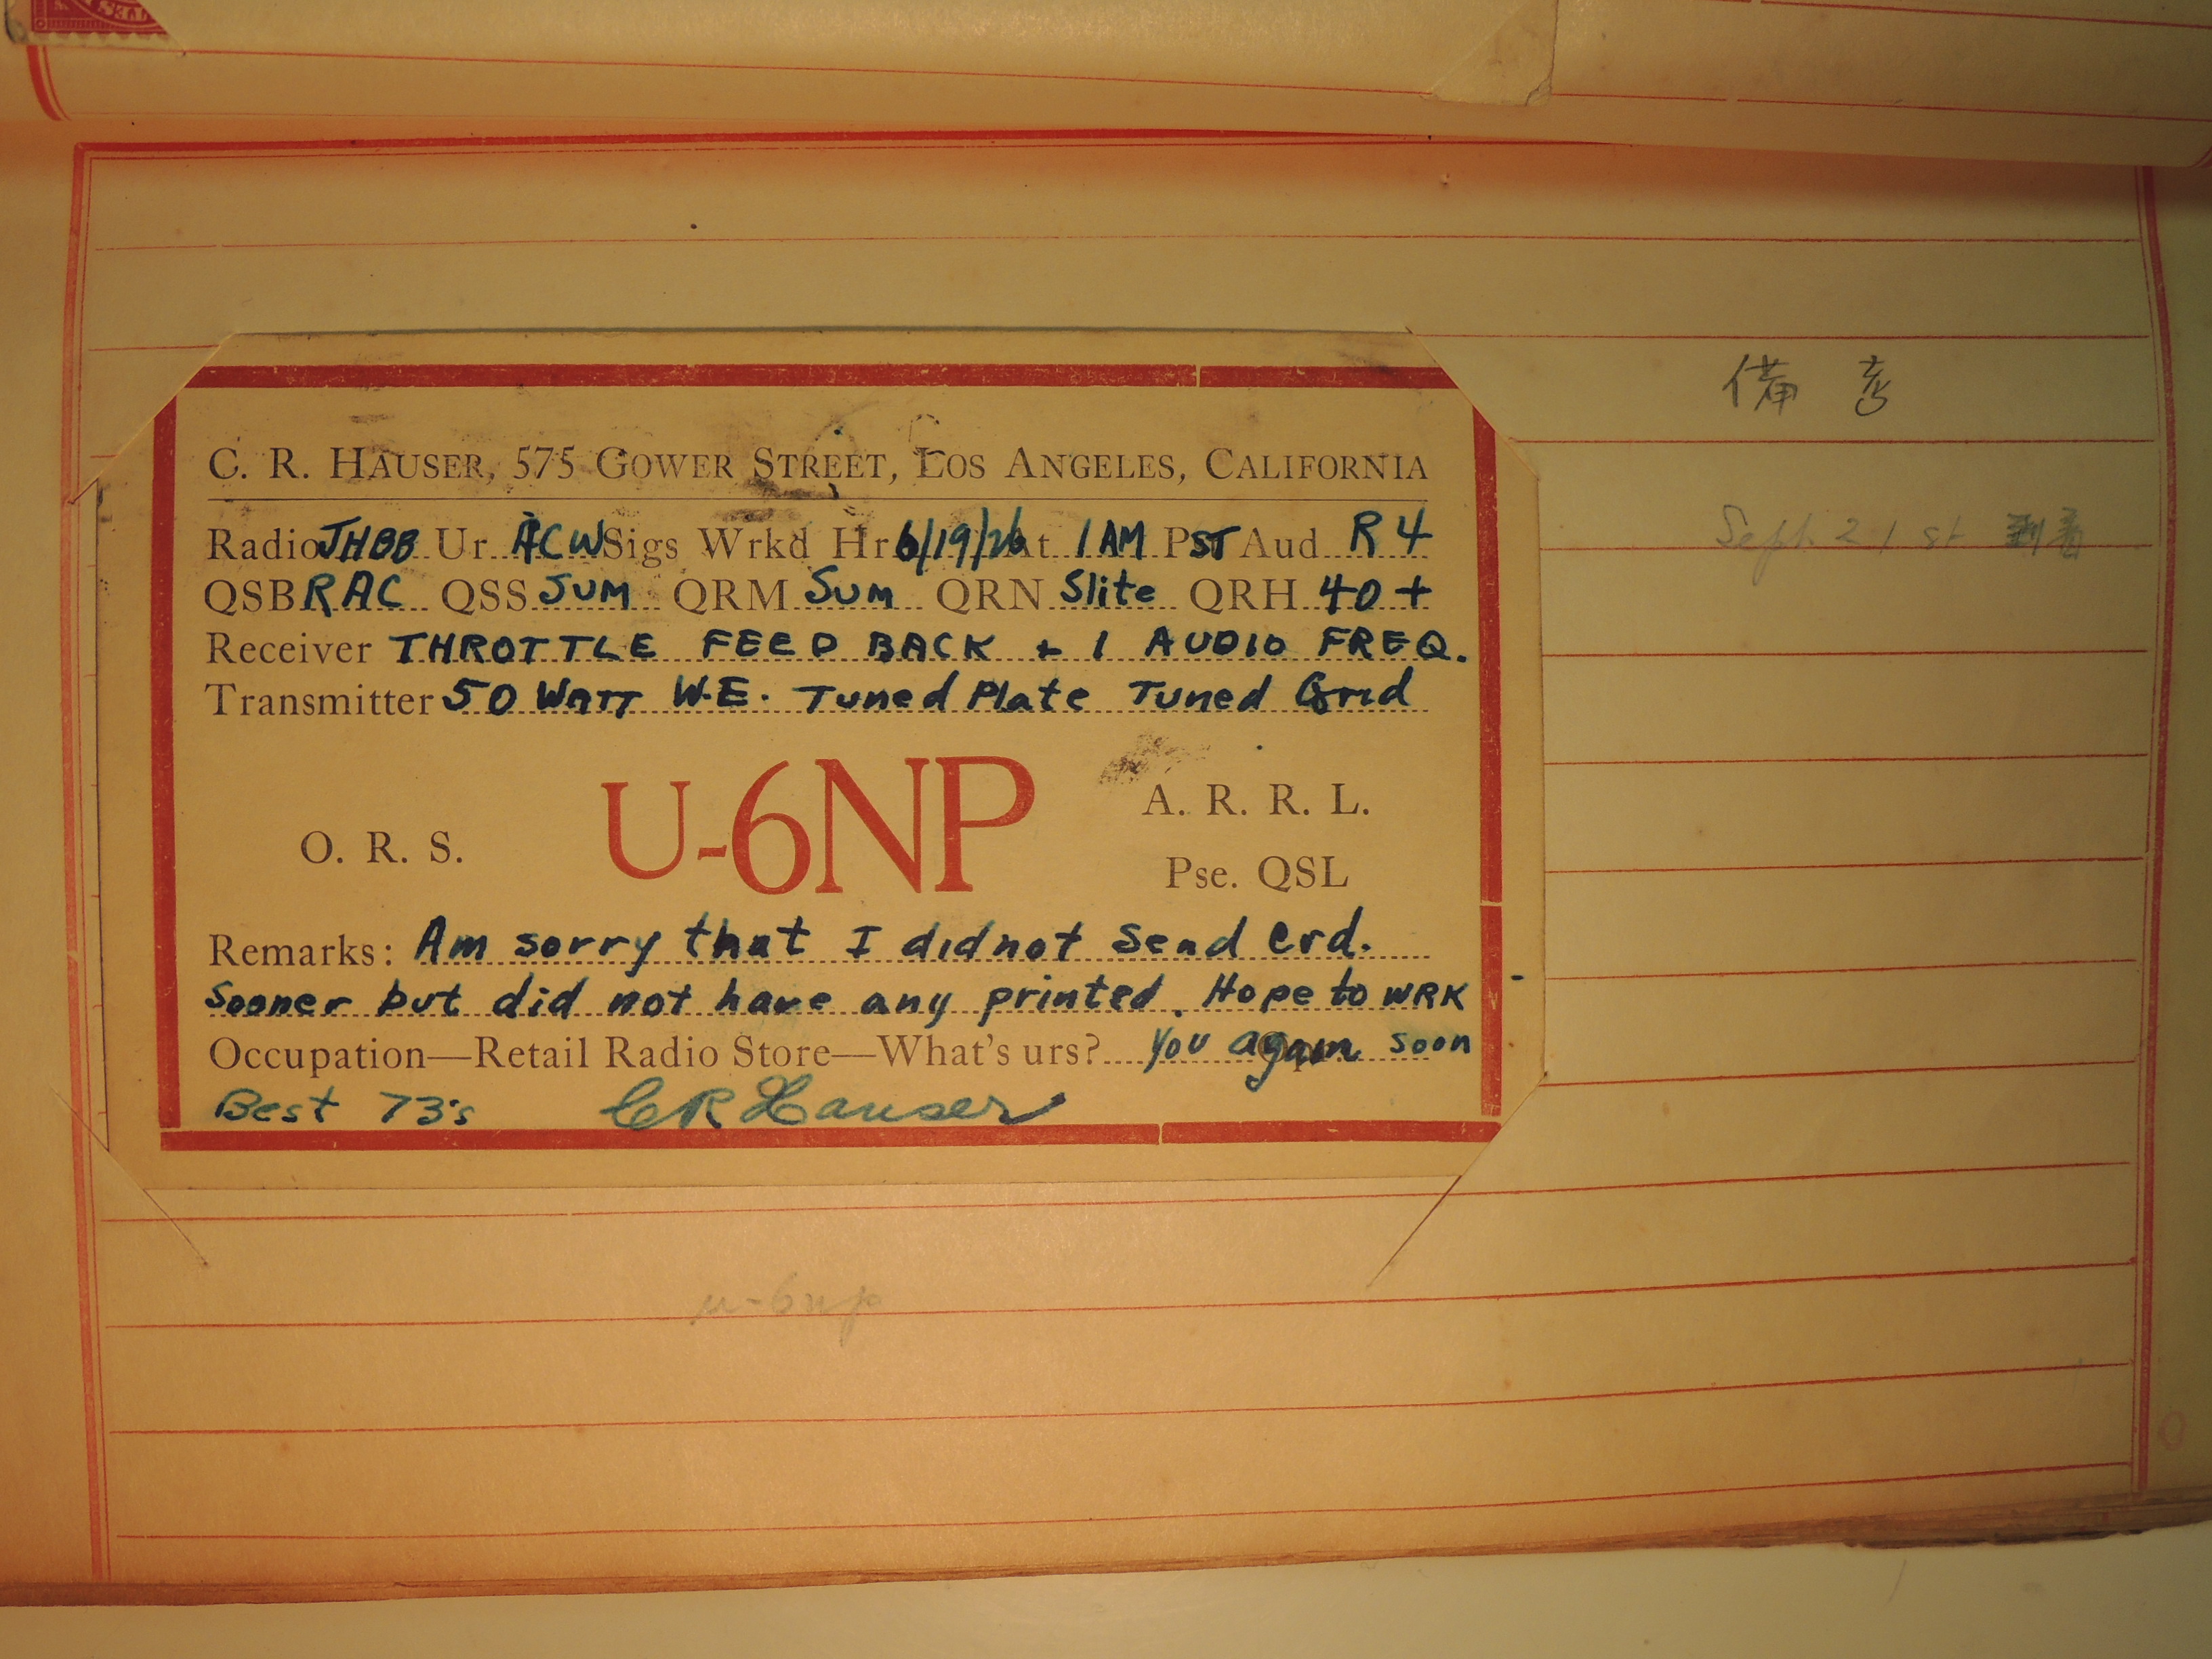 C. R. HAUSER, 575 GOWER STREET, LOS ANGELES, CALIFORNIA
Radio JHBB Ur ACW Sigs Wrkd Hr 6/19/26 at 1 AM PST Aud R 4
QSB RAC QSS SUM QRM SUM QRN Slite QRH 40+
Receiver THROTTLE FEED BACK + 1 AUDIO FREQ.
Transmitter 50 WATT W.E. Tuned Plate Tuned Grid
O. R. S. U-6NP A. R. R. L.
Pse. QSL
Remarks: Am sorry that I did not send crd.
Sooner but did not have any printed. Hope to WRK
Occupation—Retail Radio Store—What's urs? you again soon
Best 73's CR Hauser
備考
Sept. 21 st 到着
u-6np